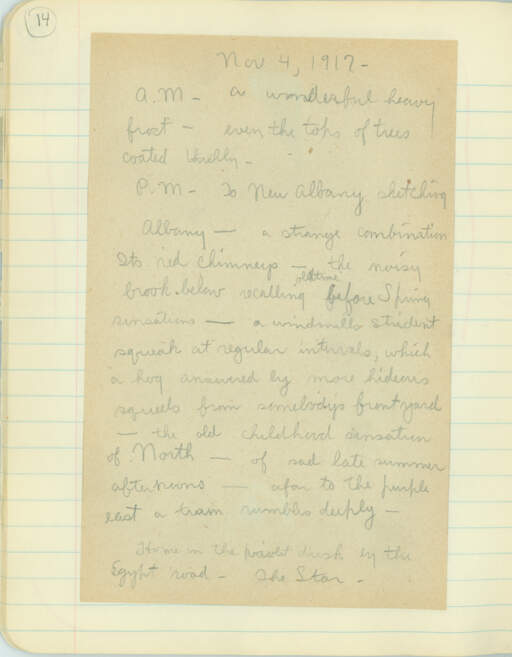 14
Nov 4, 1917-
A.M - a wonderful heavy
frost - even the tops of trees
coated thickly -
P.M - To New Albany sketching
Albany — a strange combination
Its red chimneys — the noisy
old time
brook below recalling before Spring
sensations — a windmills strident
squeak at regular intervals, which
a hog answered by more hideous
squeels from somebodys front yard
— the old childhood sensation
of North — of sad late summer
afternoons — afar to the purple
east a train rumbles deeply —
Home in the violet dusk by the
Egypt road - The Star -